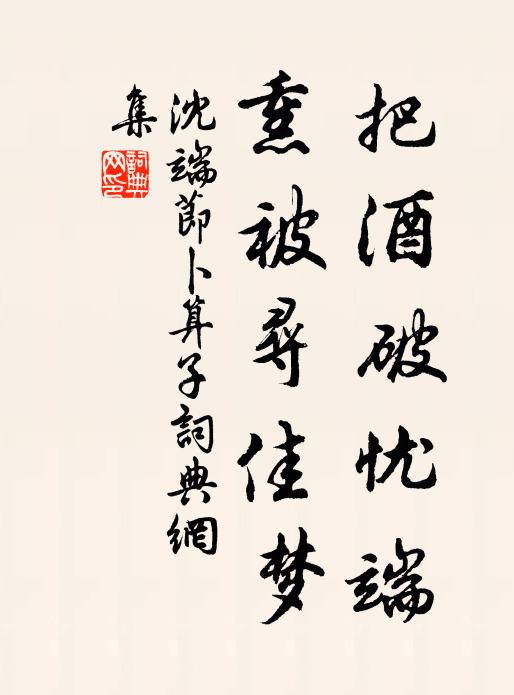 把酒破忧端
熏被寻佳梦
沈端節卜算子詞典網
集
詞典網印